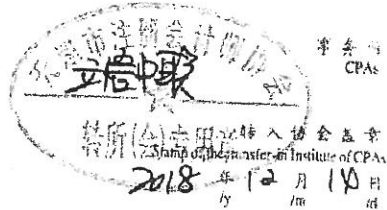 市注册会计师协会
事务所
CPAs
立信中联
转所(会)专用
转入协会盖章
Stamp of the transfer-in Institute of CPAs
2018 年 12 月 日
/y /m /d